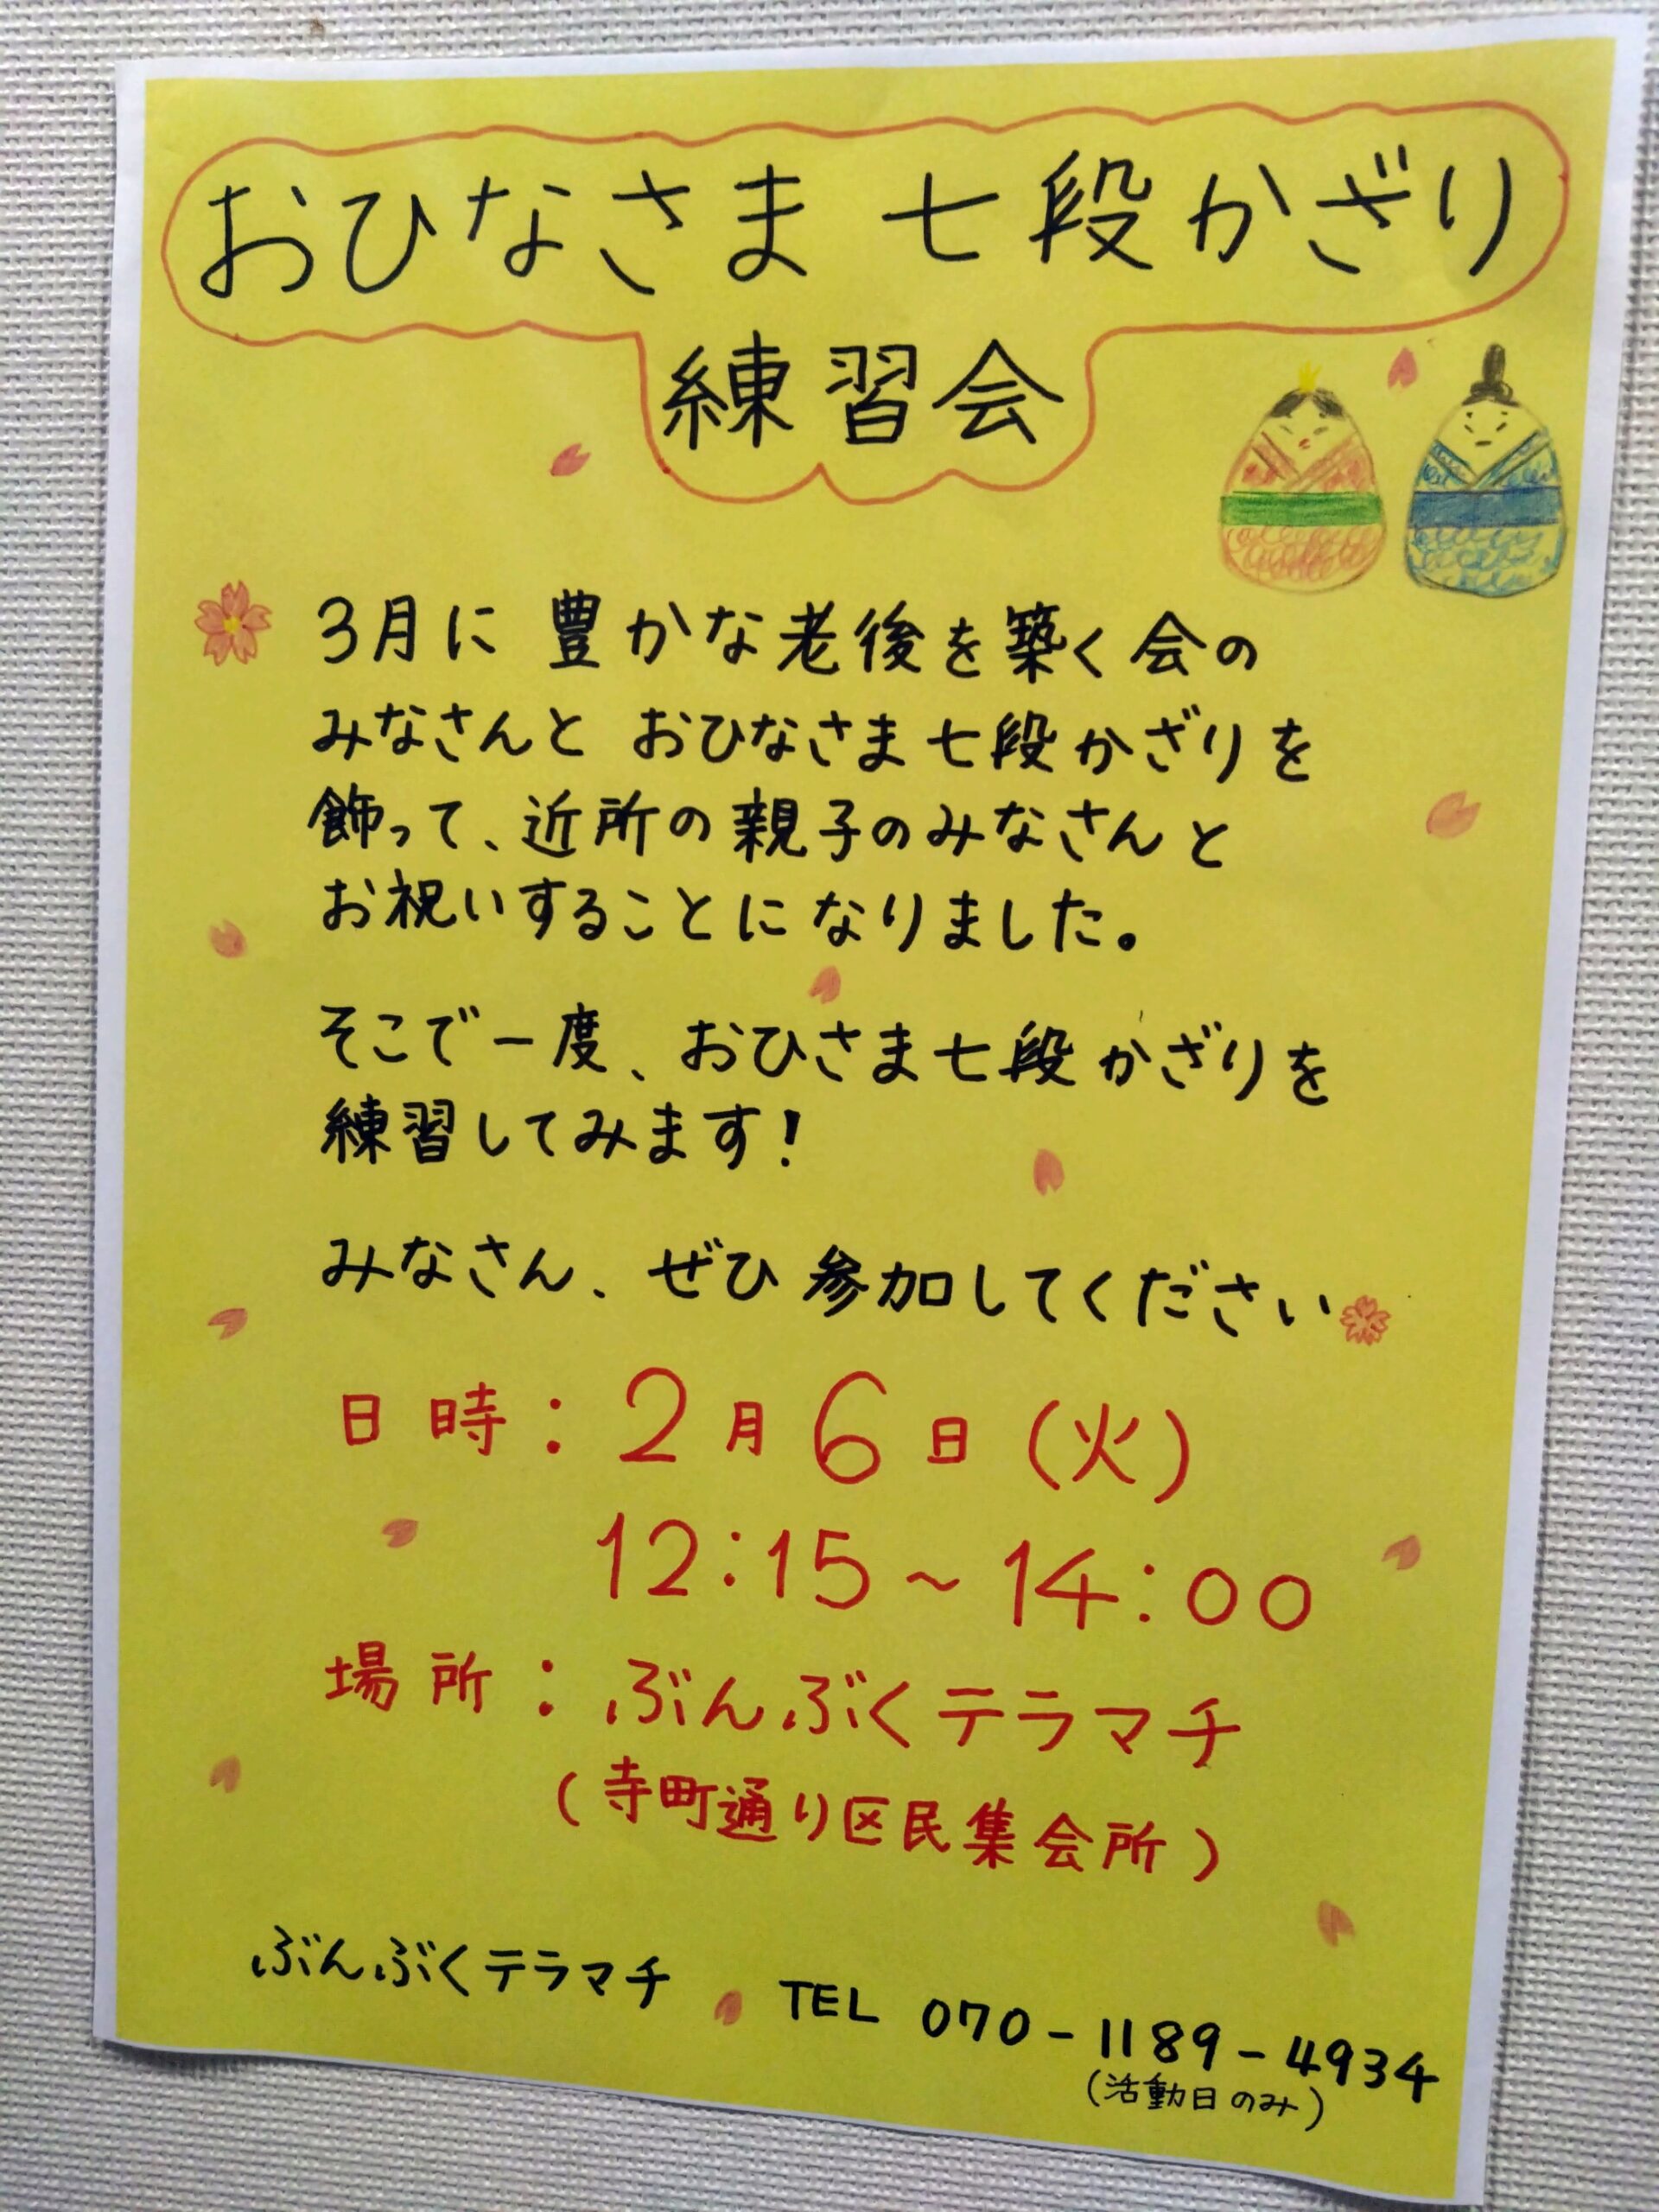 おひなさま 七段かざり
練習会
3月に 豊かな老後を築く会の
みなさんと おひなさま七段かざりを
飾って、近所の親子のみなさんと
お祝いすることになりました。
そこで一度、おひさま七段かざりを
練習してみます!
みなさん、ぜひ参加してください
日時:2月6日(火)
12:15~14:00
場所:ぶんぶくテラマチ
(寺町通り区民集会所)
ぶんぶくテラマチ TEL 070-1189-4934
(活動日のみ)